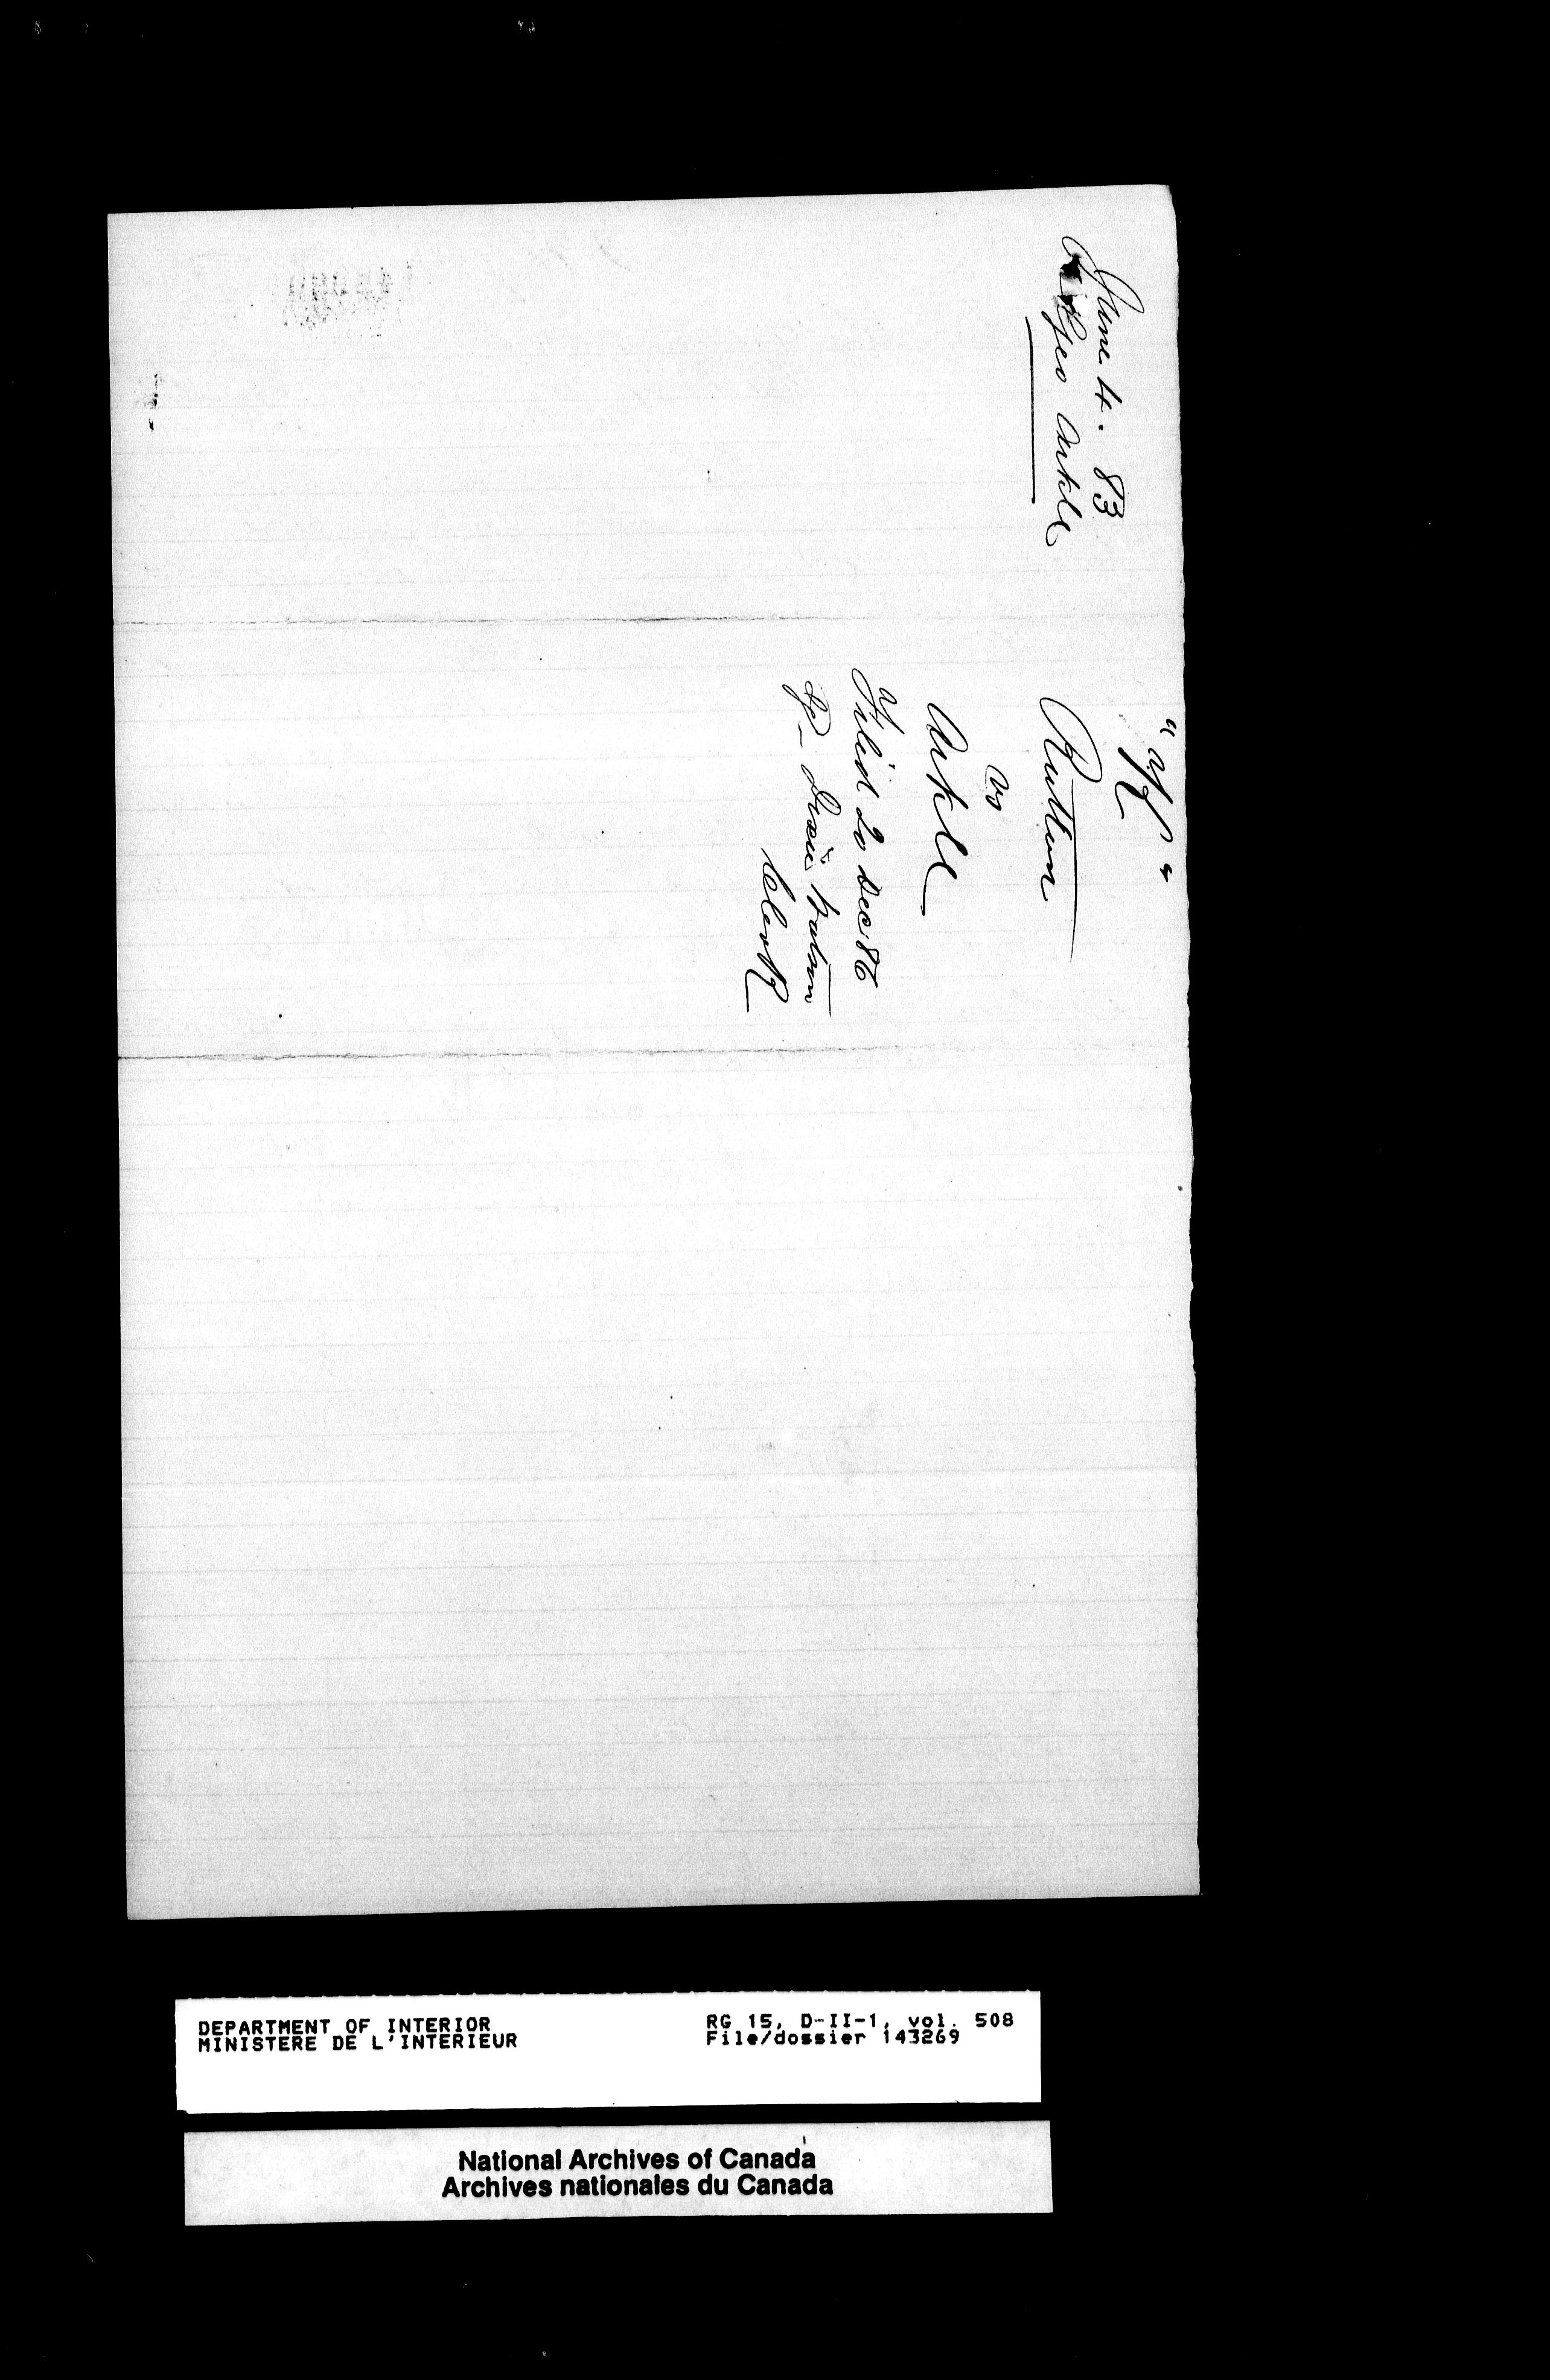 June 4. 83
Geo Arkll
"
Rutton
vs
Arkll
Filed 20 Dec 86
Clerk
DEPARTMENT OF INTERIOR
MINISTERE DE L'INTERIEUR
RG 15, D-II-1, vol. 508
File/dossier 143269
National Archives of Canada
Archives nationales du Canada